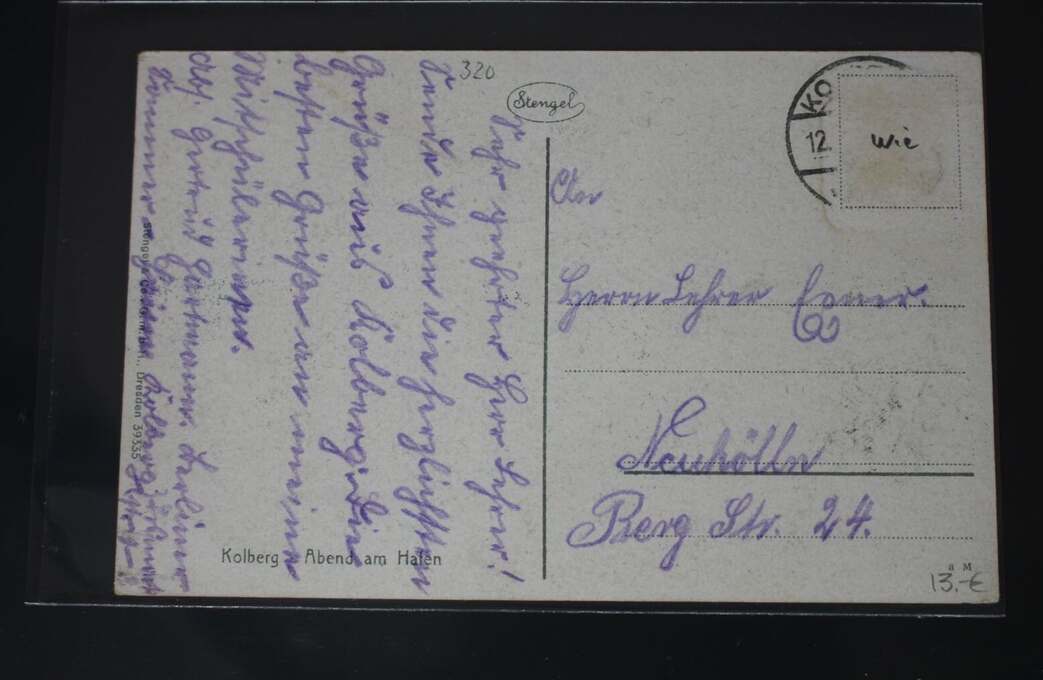 320
Stengel
Sehr geehrter Herr Lehrer!
Sende Ihnen die herzlichsten
Grüße aus Kolberg. Die
besten Grüße an meine
Mitschülerinnen.
Gertrud Hartmann.
Kolberg
Dresden 39335
Kolberg Abend am Hafen
KO
12
wie
An
Herrn Lehrer
Neukölln
Berg Str. 24.
a M
13.-€